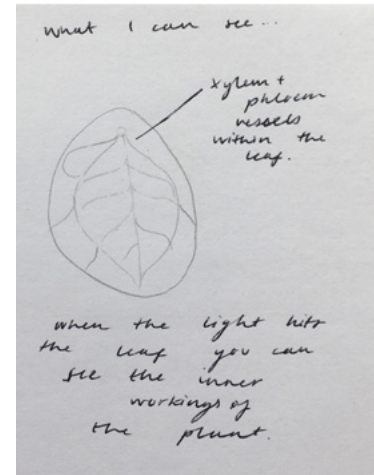 what I can see...
xylem +
phloem
vessels
within the
leaf.
when the light hits
the leaf you can
see the inner
workings of
the plant.